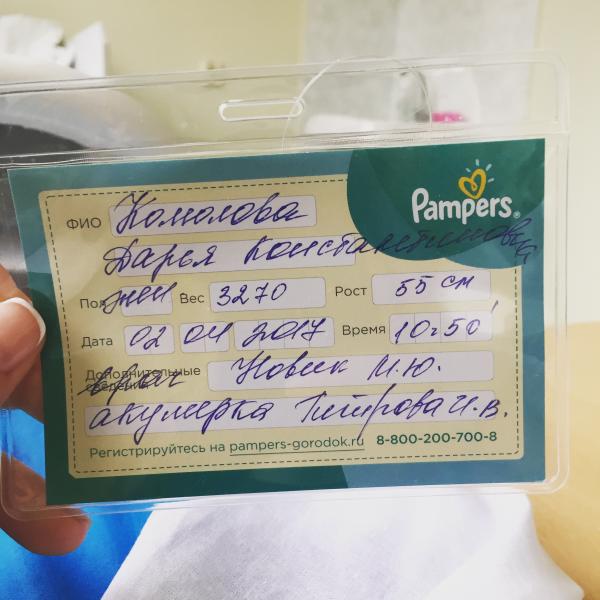 Pampers®
ФИО Комолова
Дарья Константиновна
Пол жен Вес 3270 Рост 55 см
Дата 02 04 2017 Время 10:50
Дополнительные сведения врач Новик И.Ю.
акушерка Титрова И.В.
Регистрируйтесь на pampers-gorodok.ru 8-800-200-700-8